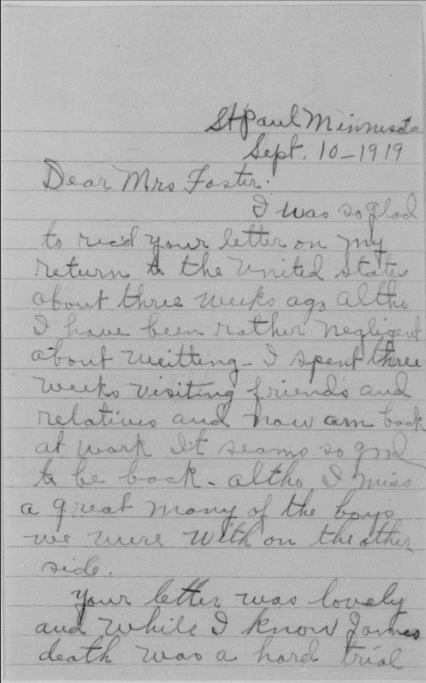 St Paul Minnesota
Sept. 10-1919
Dear Mrs Foster.
I was so glad
to rec'd your letter on my
return to the United States
about three weeks ago altho
I have been rather negligent
about writting - I spent three
weeks visiting friends and
relatives and now am back
at work It seams so good
to be back - altho I miss
a great many of the boys
we were with on the other
side.
Your letter was lovely
and while I know James
death was a hard trial